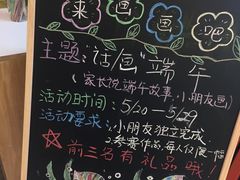 来画画吧
主题:话画"端午
(家长说端午故事,小朋友画)
活动时间:5/20-5/29
活动要求:1.小朋友独立完成
2.参赛作品每人仅限一幅
前三名有礼品哦!